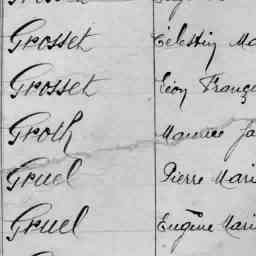 Grosset Célestin Ma
Grosset Léon Franç
Groth Maurice Ja
Gruel Pierre Mari
Gruel Eugène Mari